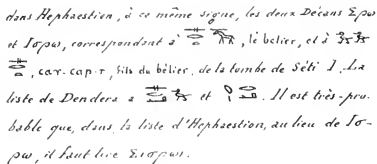 dans Hephaestion, à ce même signe, les deux Décans Σρω
et Ισρω, correspondant à , le bélier, et à
, car-cap-r, fils du bélier, de la tombe de Séti I. La
liste de Dendera a et . Il est très-pro-
bable que, dans la liste d'Hephaestion, au lieu de Ισ-
ρω, il faut lire Σισρωι.